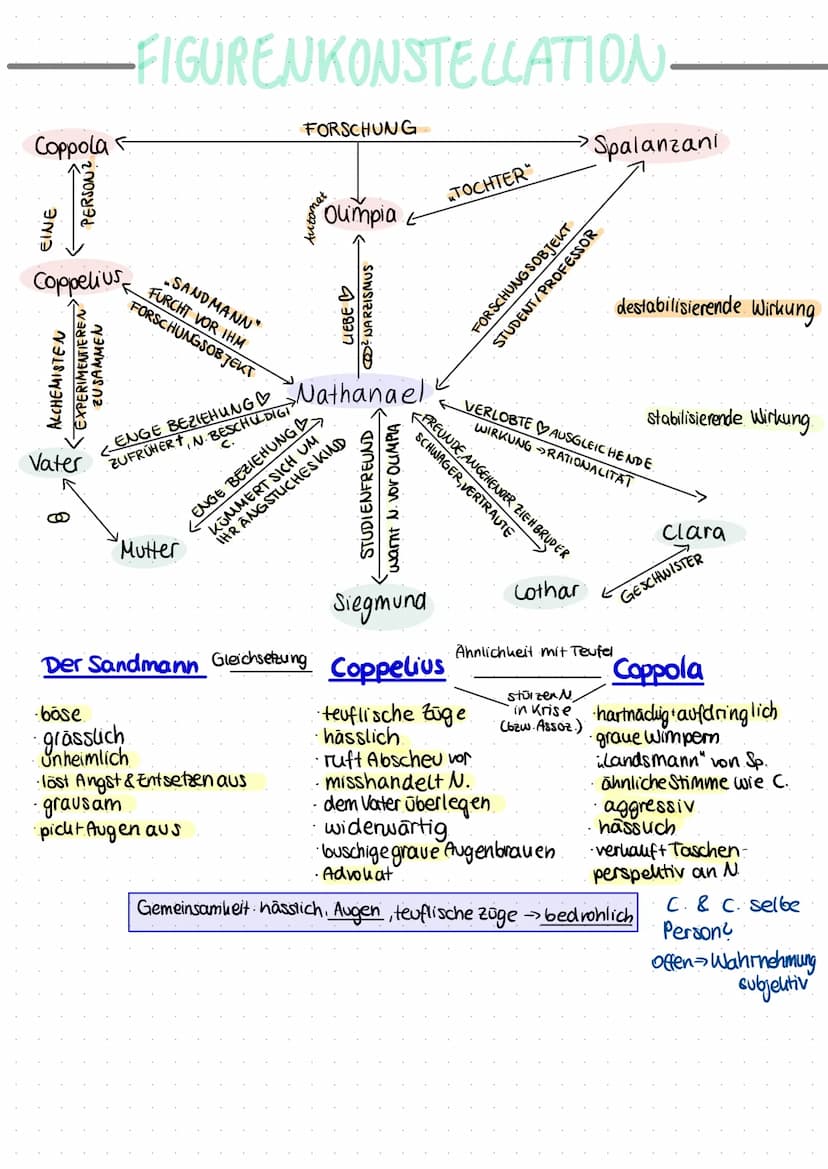 FIGURENKONSTELLATION
FORSCHUNG
Coppola
Spalanzani
EINE
PERSON?
"TOCHTER"
Automat
Olimpia
Coppelius
"SANDMANN"
FURCHT VOR IHM
FORSCHUNGSOBJEKT
LIEBE
NARZISMUS
FORSCHUNGSOBJEKT
STUDENT/PROFESSOR
destabilisierende Wirkung
ALCHEMISTEN
EXPERIMENTIEREN
ZUSAMMEN
Nathanael
stabilisierende Wirkung
ENGE BEZIEHUNG
ZU FRÜHER †, N. BESCHULDIGT
C.
VERLOBTE AUSGLEICHENDE
WIRKUNG → RATIONALITÄT
Vater
ENGE BEZIEHUNG
KÜMMERT SICH UM
IHR ÄNGSTLICHES KIND
STUDIENFREUND
warnt N. vor OLIMPIA
FREUNDE, ANGEHENDER ZIEHBRUDER
SCHWAGER, VERTRAUTE
Mutter
Clara
Siegmund
Lothar
GESCHWISTER
Der Sandmann Gleichsetzung Coppelius Ähnlichkeit mit Teufel Coppola
stürzen N.
in Krise
(bzw. Assoz.)
· böse
· grässlich
· unheimlich
· löst Angst & Entsetzen aus
· grausam
· pickt Augen aus
· teuflische Züge
· hässlich
· ruft Abscheu vor
· misshandelt N.
· dem Vater überlegen
· widerwärtig
· buschige graue Augenbrauen
· Advokat
· hartnäckig + aufdringlich
· graue Wimpern
· "Landsmann" von Sp.
· ähnliche Stimme wie C.
· aggressiv
· hässlich
· verkauft Taschen-
perspektiv an N.
Gemeinsamkeit: hässlich, Augen, teuflische züge → bedrohlich
C. & C. selbe
Person?
Offen → Wahrnehmung
subjektiv